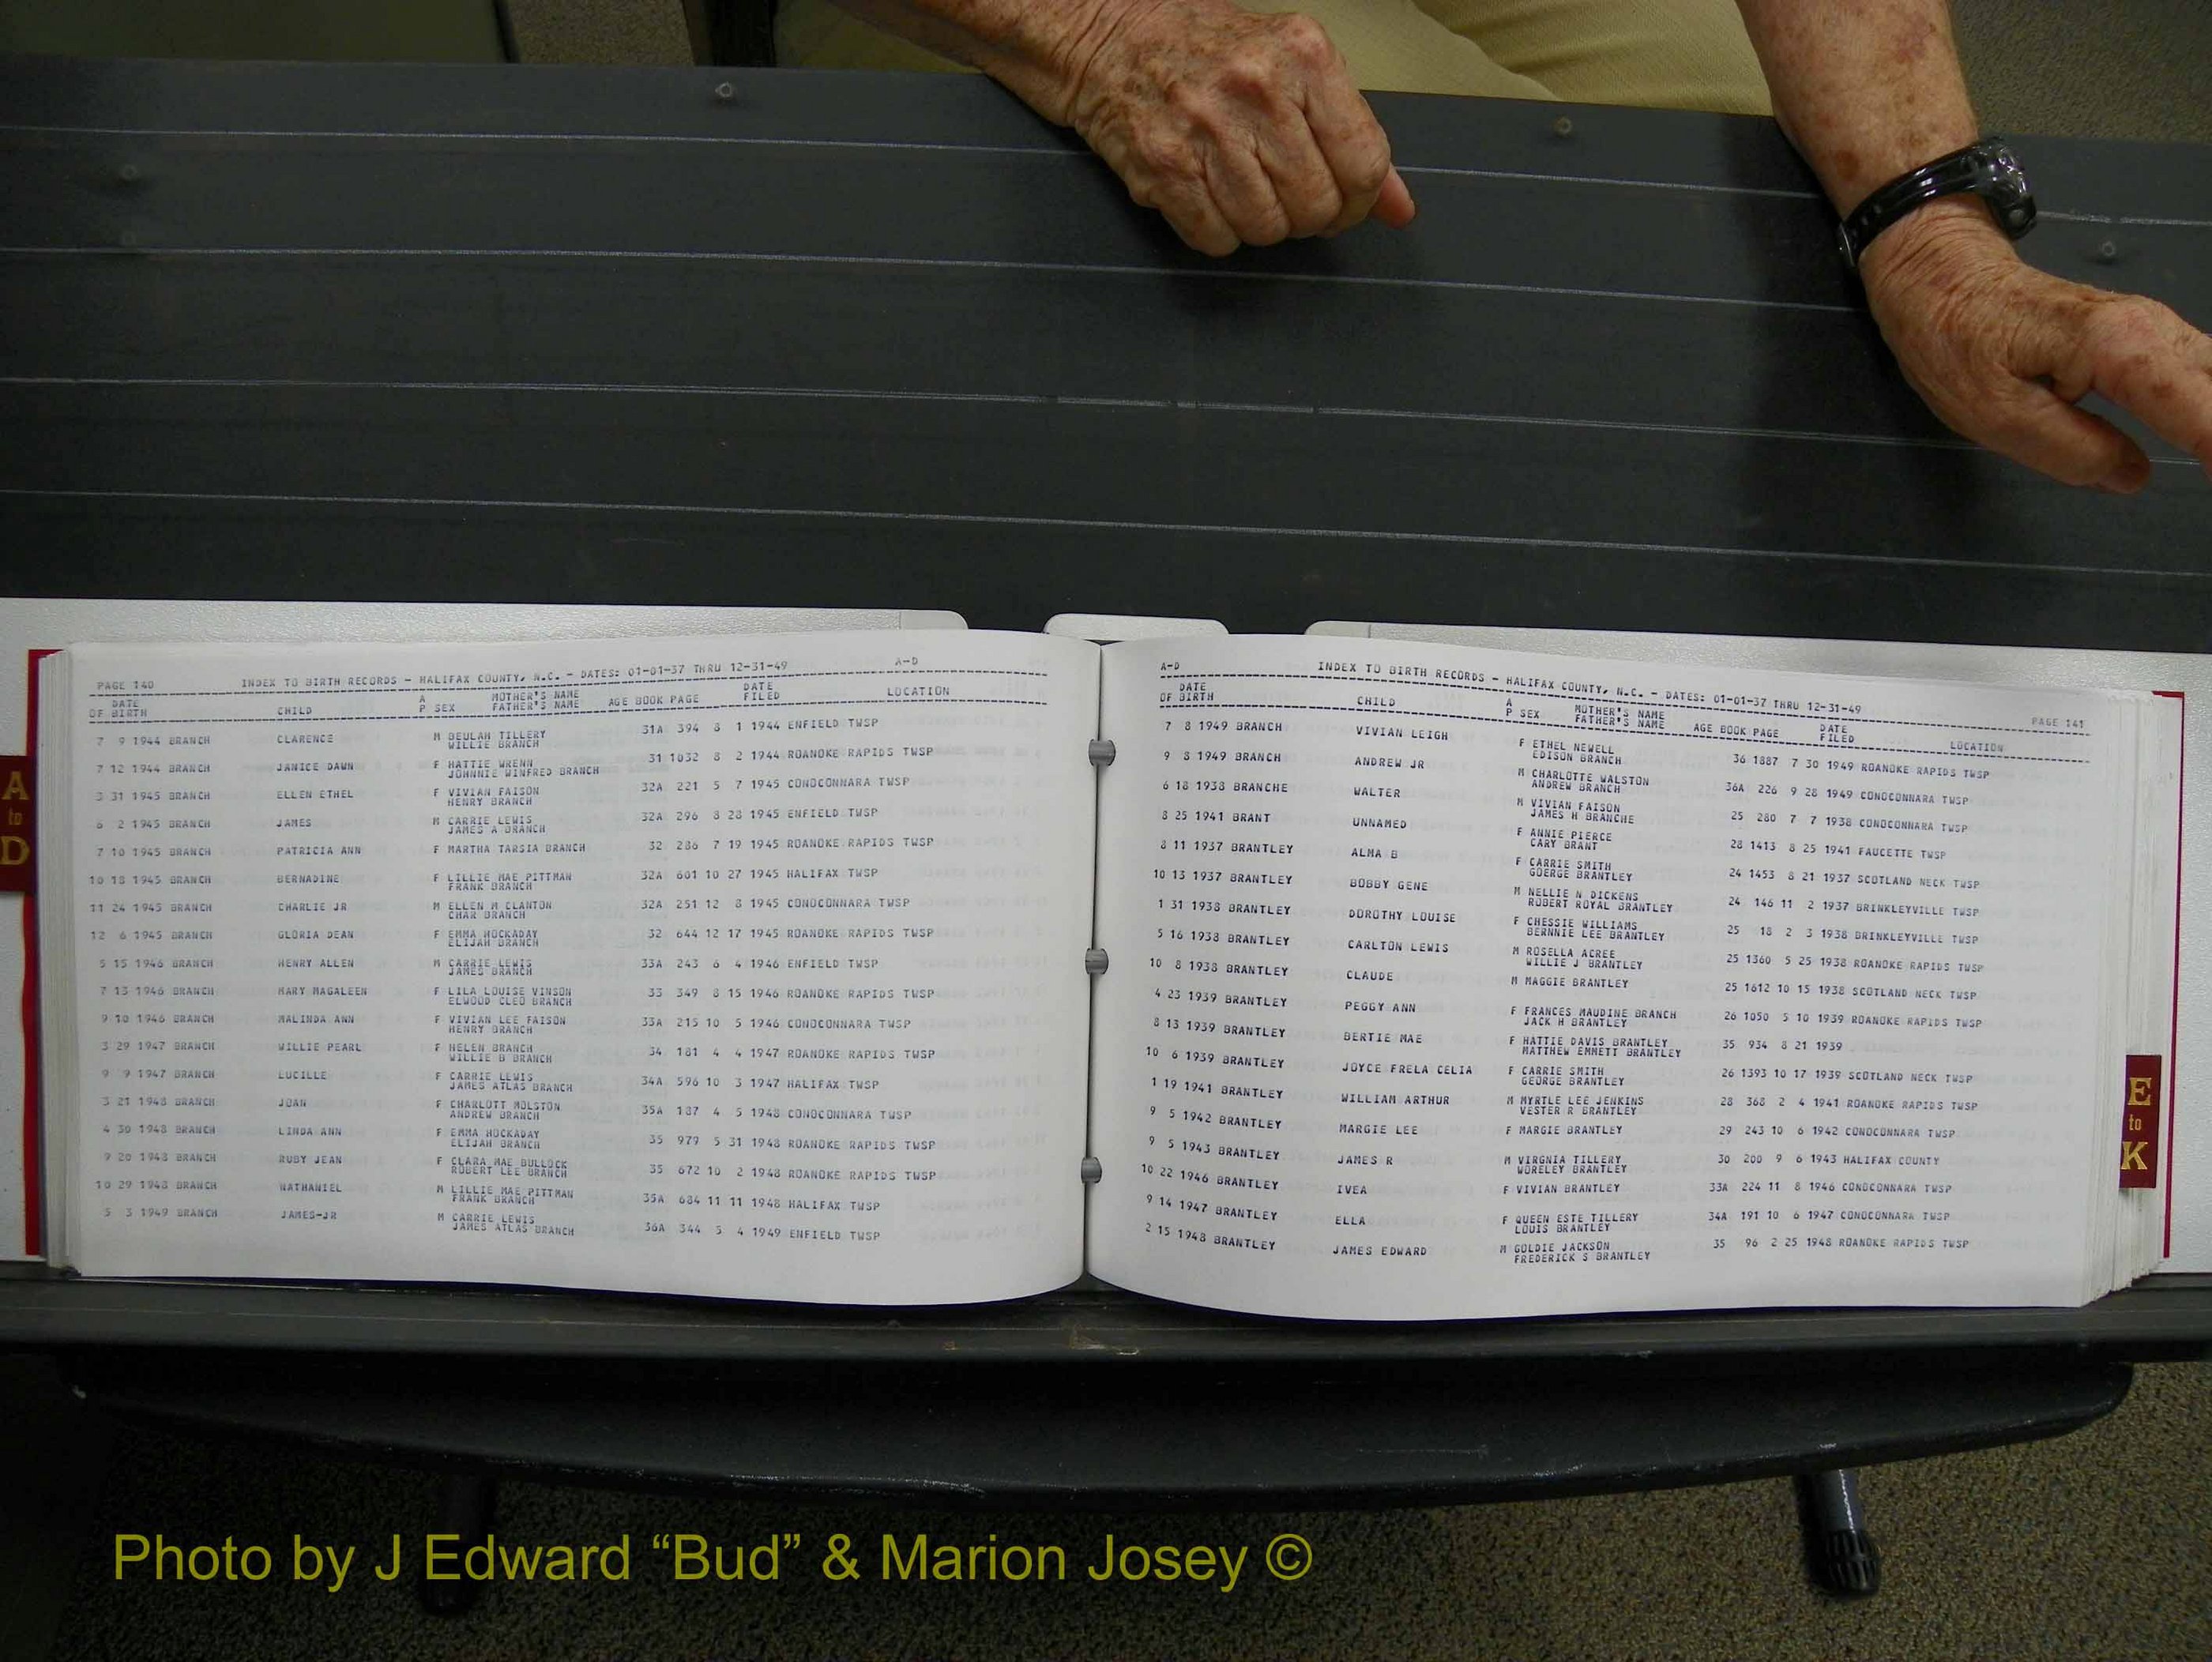 PAGE 140 INDEX TO BIRTH RECORDS - HALIFAX COUNTY, N.C. - DATES: 01-01-37 THRU 12-31-49 A-D
DATE A MOTHER'S NAME DATE
OF BIRTH CHILD P SEX FATHER'S NAME AGE BOOK PAGE FILED LOCATION
7 9 1944 BRANCH CLARENCE M BEULAH TILLERY 31A 394 8 1 1944 ENFIELD TWSP
WILLIE BRANCH
7 12 1944 BRANCH JANICE DAWN F HATTIE WRENN 31 1032 8 2 1944 ROANOKE RAPIDS TWSP
JOHNNIE WINFRED BRANCH
3 31 1945 BRANCH ELLEN ETHEL F VIVIAN FAISON 32A 221 5 7 1945 CONOCONNARA TWSP
HENRY BRANCH
6 2 1945 BRANCH JAMES M CARRIE LEWIS 32A 296 8 28 1945 ENFIELD TWSP
JAMES A BRANCH
7 10 1945 BRANCH PATRICIA ANN F MARTHA TARSIA BRANCH 32 286 7 19 1945 ROANOKE RAPIDS TWSP
10 18 1945 BRANCH BERNADINE F LILLIE MAE PITTMAN 32A 601 10 27 1945 HALIFAX TWSP
FRANK BRANCH
11 24 1945 BRANCH CHARLIE JR M ELLEN M CLANTON 32A 251 12 8 1945 CONOCONNARA TWSP
CHAR BRANCH
12 6 1945 BRANCH GLORIA DEAN F EMMA HOCKADAY 32 644 12 17 1945 ROANOKE RAPIDS TWSP
ELIJAH BRANCH
5 15 1946 BRANCH HENRY ALLEN M CARRIE LEWIS 33A 243 6 4 1946 ENFIELD TWSP
JAMES BRANCH
7 13 1946 BRANCH MARY MAGALEEN F LILA LOUISE VINSON 33 349 8 15 1946 ROANOKE RAPIDS TWSP
ELWOOD CLEO BRANCH
9 10 1946 BRANCH MALINDA ANN F VIVIAN LEE FAISON 33A 215 10 5 1946 CONOCONNARA TWSP
HENRY BRANCH
3 29 1947 BRANCH WILLIE PEARL F HELEN BRANCH 34 181 4 4 1947 ROANOKE RAPIDS TWSP
WILLIE B BRANCH
9 9 1947 BRANCH LUCILLE F CARRIE LEWIS 34A 596 10 3 1947 HALIFAX TWSP
JAMES ATLAS BRANCH
3 21 1948 BRANCH JOAN F CHARLOTT MOLSTON 35A 187 4 5 1948 CONOCONNARA TWSP
ANDREW BRANCH
4 30 1948 BRANCH LINDA ANN F EMMA HOCKADAY 35 979 5 31 1948 ROANOKE RAPIDS TWSP
ELIJAH BRANCH
9 20 1948 BRANCH RUBY JEAN F CLARA MAE BULLOCK 35 672 10 2 1948 ROANOKE RAPIDS TWSP
ROBERT LEE BRANCH
10 29 1948 BRANCH NATHANIEL M LILLIE MAE PITTMAN 35A 684 11 11 1948 HALIFAX TWSP
FRANK BRANCH
5 3 1949 BRANCH JAMES-JR M CARRIE LEWIS 36A 344 5 4 1949 ENFIELD TWSP
JAMES ATLAS BRANCH
A-D INDEX TO BIRTH RECORDS - HALIFAX COUNTY, N.C. - DATES: 01-01-37 THRU 12-31-49 PAGE 141
DATE A MOTHER'S NAME DATE
OF BIRTH CHILD P SEX FATHER'S NAME AGE BOOK PAGE FILED LOCATION
7 8 1949 BRANCH VIVIAN LEIGH F ETHEL NEWELL 36 1887 7 30 1949 ROANOKE RAPIDS TWSP
EDISON BRANCH
9 8 1949 BRANCH ANDREW JR M CHARLOTTE WALSTON 36A 226 9 28 1949 CONOCONNARA TWSP
ANDREW BRANCH
6 18 1938 BRANCHE WALTER M VIVIAN FAISON 25 280 7 7 1938 CONOCONNARA TWSP
JAMES H BRANCHE
8 25 1941 BRANT UNNAMED F ANNIE PIERCE 28 1413 8 25 1941 FAUCETTE TWSP
CARY BRANT
8 11 1937 BRANTLEY ALMA B F CARRIE SMITH 24 1453 8 21 1937 SCOTLAND NECK TWSP
GOERGE BRANTLEY
10 13 1937 BRANTLEY BOBBY GENE M NELLIE N DICKENS 24 146 11 2 1937 BRINKLEYVILLE TWSP
ROBERT ROYAL BRANTLEY
1 31 1938 BRANTLEY DOROTHY LOUISE F CHESSIE WILLIAMS 25 18 2 3 1938 BRINKLEYVILLE TWSP
BERNNIE LEE BRANTLEY
5 16 1938 BRANTLEY CARLTON LEWIS M ROSELLA ACREE 25 1360 5 25 1938 ROANOKE RAPIDS TWSP
WILLIE J BRANTLEY
10 8 1938 BRANTLEY CLAUDE M MAGGIE BRANTLEY 25 1612 10 15 1938 SCOTLAND NECK TWSP
4 23 1939 BRANTLEY PEGGY ANN F FRANCES MAUDINE BRANCH 26 1050 5 10 1939 ROANOKE RAPIDS TWSP
JACK H BRANTLEY
8 13 1939 BRANTLEY BERTIE MAE F HATTIE DAVIS BRANTLEY 35 934 8 21 1939
MATTHEW EMMETT BRANTLEY
10 6 1939 BRANTLEY JOYCE FRELA CELIA F CARRIE SMITH 26 1393 10 17 1939 SCOTLAND NECK TWSP
GEORGE BRANTLEY
1 19 1941 BRANTLEY WILLIAM ARTHUR M MYRTLE LEE JENKINS 28 368 2 4 1941 ROANOKE RAPIDS TWSP
VESTER R BRANTLEY
9 5 1942 BRANTLEY MARGIE LEE F MARGIE BRANTLEY 29 243 10 6 1942 CONOCONNARA TWSP
9 5 1943 BRANTLEY JAMES R M VIRGNIA TILLERY 30 200 9 6 1943 HALIFAX COUNTY
WORELEY BRANTLEY
10 22 1946 BRANTLEY IVEA F VIVIAN BRANTLEY 33A 224 11 8 1946 CONOCONNARA TWSP
9 14 1947 BRANTLEY ELLA F QUEEN ESTE TILLERY 34A 191 10 6 1947 CONOCONNARA TWSP
LOUIS BRANTLEY
2 15 1948 BRANTLEY JAMES EDWARD M GOLDIE JACKSON 35 96 2 25 1948 ROANOKE RAPIDS TWSP
FREDERICK S BRANTLEY
A
to
D
E
to
K
Photo by J Edward “Bud” & Marion Josey ©